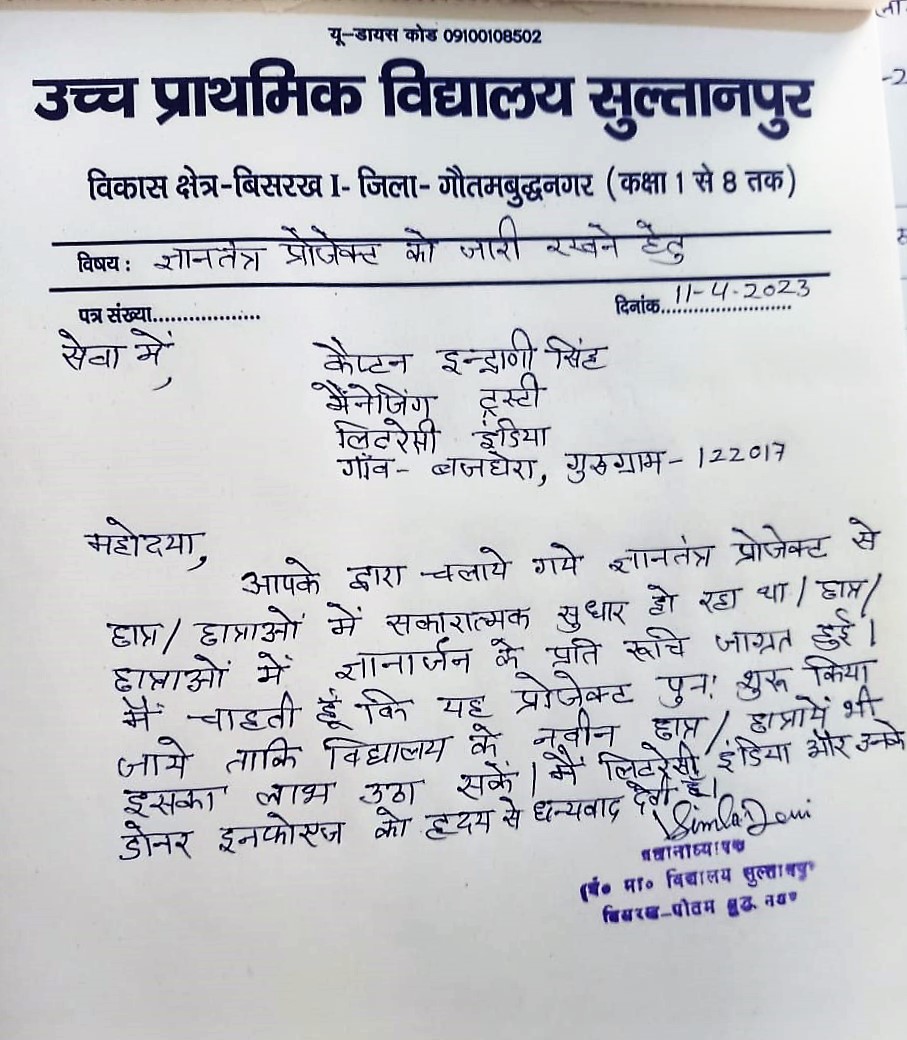 यू-डायस कोड 09100108502
उच्च प्राथमिक विद्यालय सुल्तानपुर
विकास क्षेत्र-बिसरख I- जिला- गौतमबुद्धनगर (कक्षा 1 से 8 तक)
विषय: ज्ञानतंत्र प्रोजेक्ट को जारी रखने हेतु
पत्र संख्या.................. दिनांक 11-4-2023
सेवा में, कैप्टन इन्द्राणी सिंह
मैंनेजिंग ट्रस्टी
लिटरेसी इंडिया
गाँव- बजघेरा, गुरुग्राम- 122017
महोदया,
आपके द्वारा चलाये गये ज्ञानतंत्र प्रोजेक्ट से
छात्र/ छात्राओं में सकारात्मक सुधार हो रहा था / छात्र/
छात्राओं में ज्ञानार्जन के प्रति रूचि जाग्रत हुई।
मैं चाहती हूँ कि यह प्रोजेक्ट पुन: शुरू किया
जाये ताकि विद्यालय के नवीन छात्र / छात्रायें भी
इसका लाभ उठा सकें। मैं लिटरेसी इंडिया और उनके
डोनर इनफोएज को हृदय से धन्यवाद देती हूँ।
Simla Devi
प्रधानाध्यापक
मा० विद्यालय सुल्तानपुर
बिसरख-गौतम बुद्ध नगर